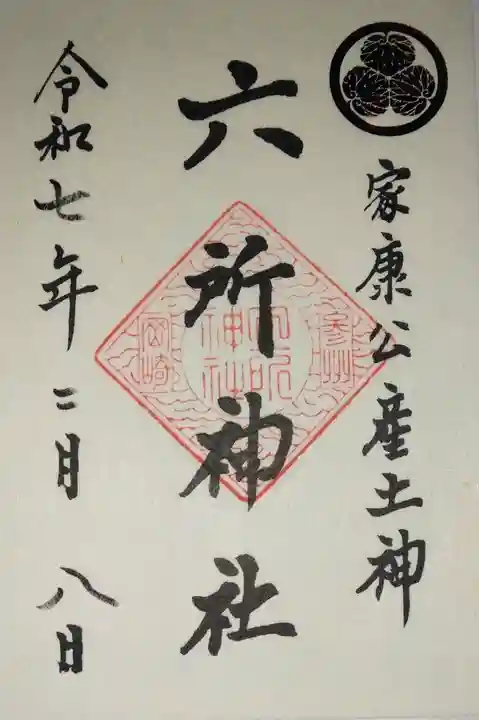 家康公産土神
六所神社
參州
六所神社
岡崎
令和七年二月八日